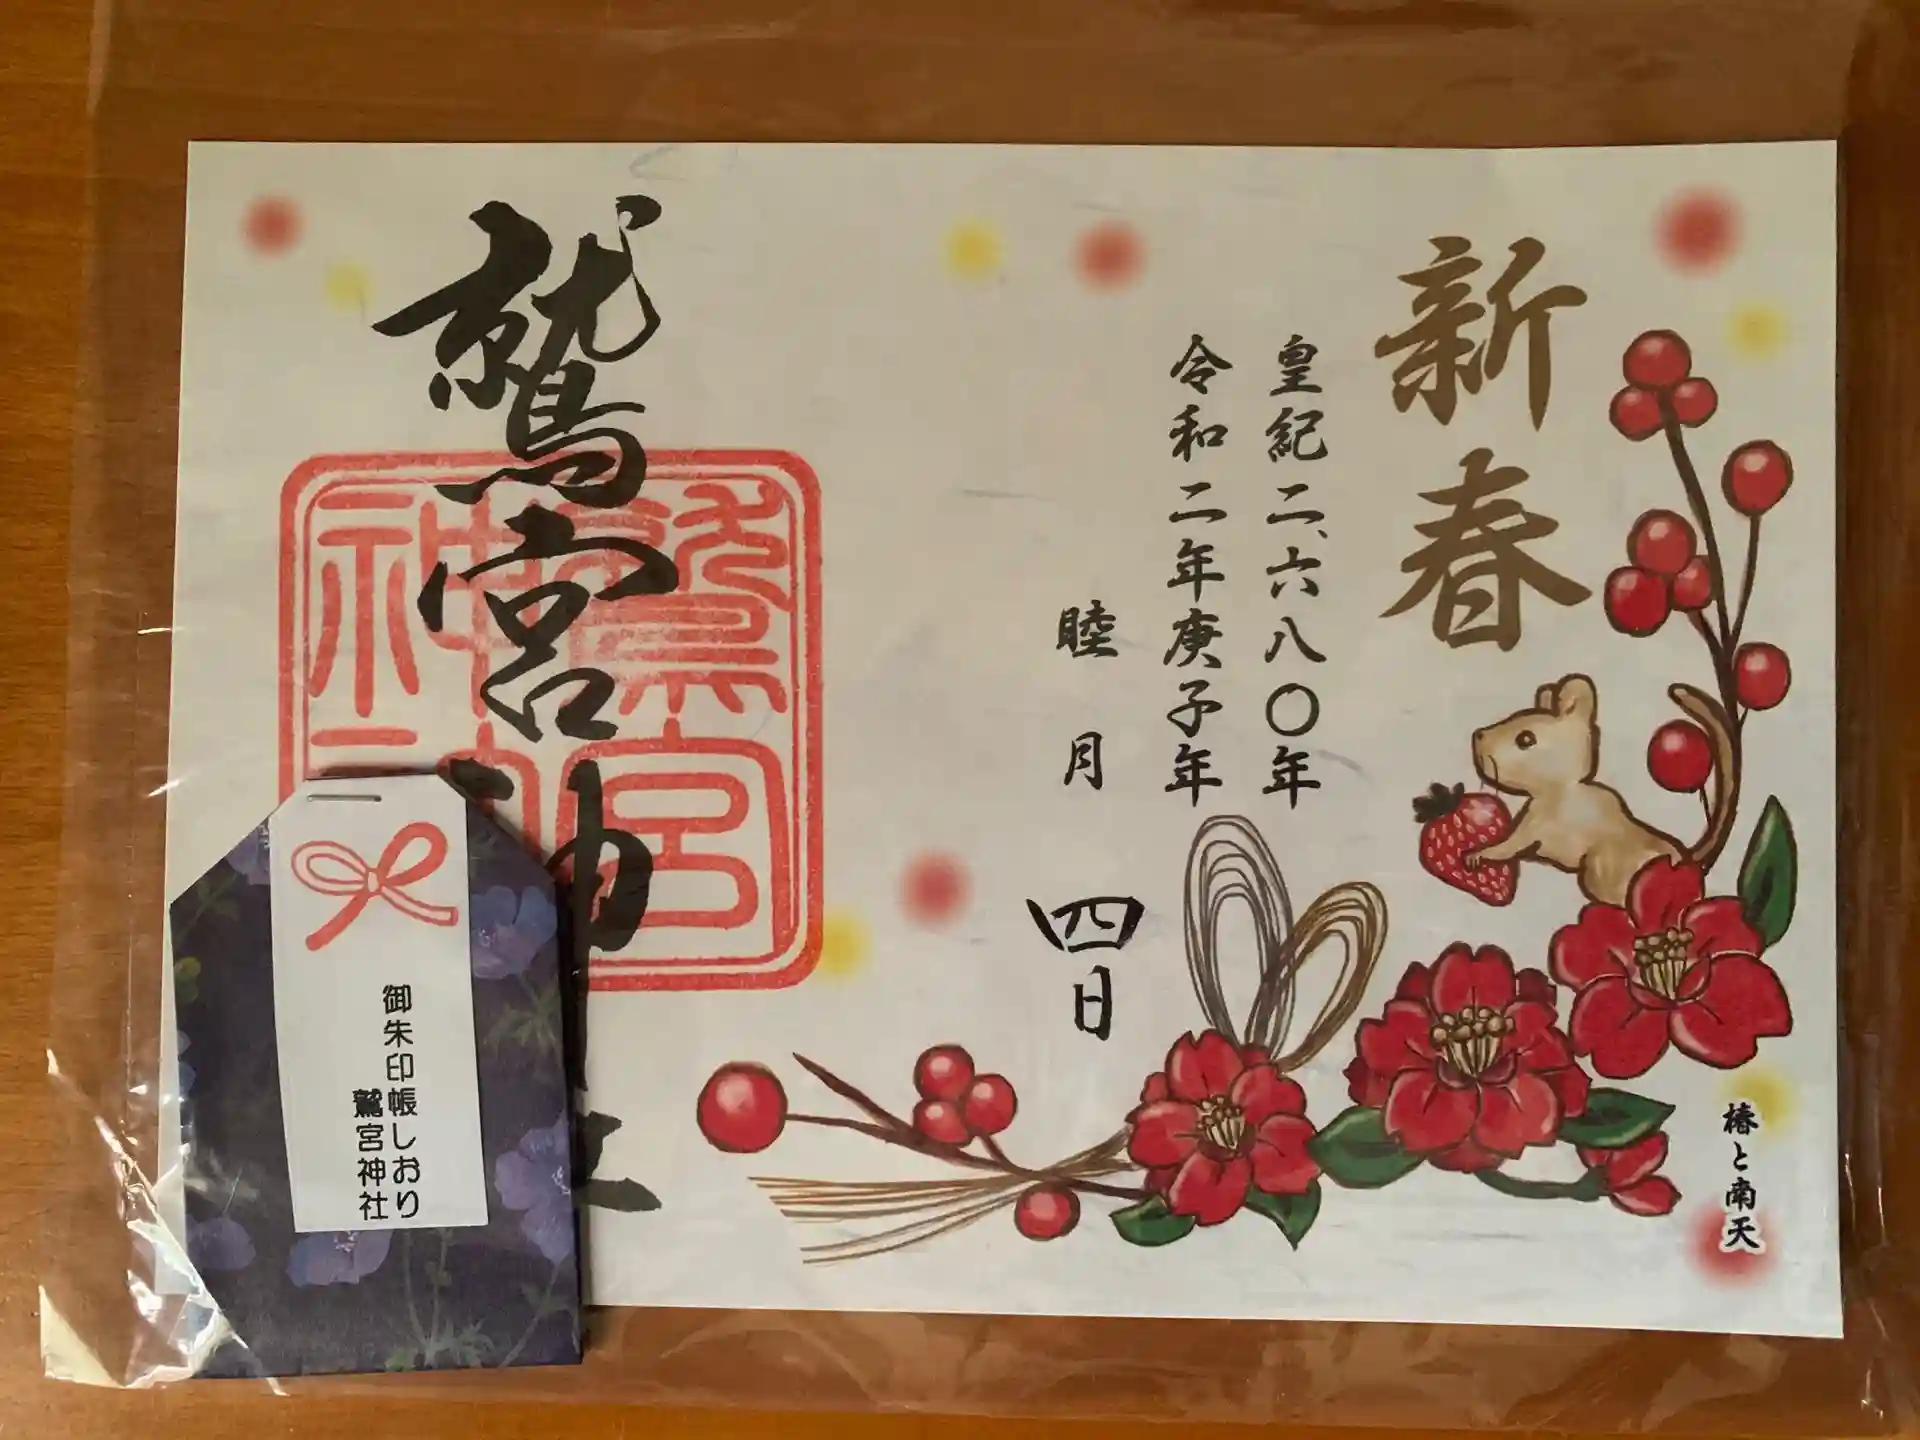 新春
皇紀二、六八〇年
令和二年庚子年
睦月
四日
椿と南天
鷲宮神社
鷲宮
神社
御朱印帳しおり
鷲宮神社